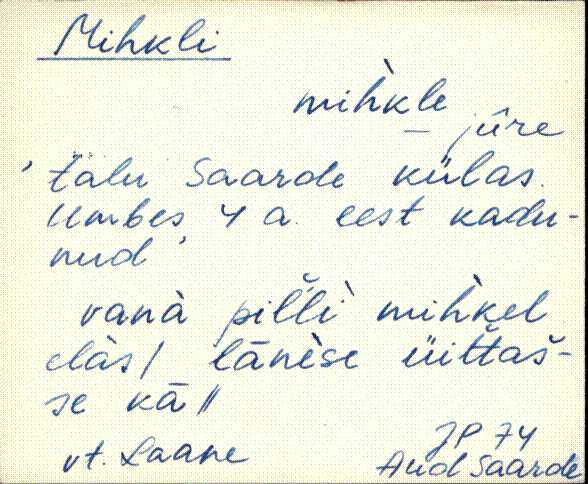 Mihkli
mih̀kle
– jûre
' talu Saarde külas.
Umbes 4 a. eest kadu-
nud '
vanà pil̆l̆ì mih̀kel
elàs / lānèse üit̆t̆aš-
se kā //
vt. Laane
JP 74
Aud Saarde